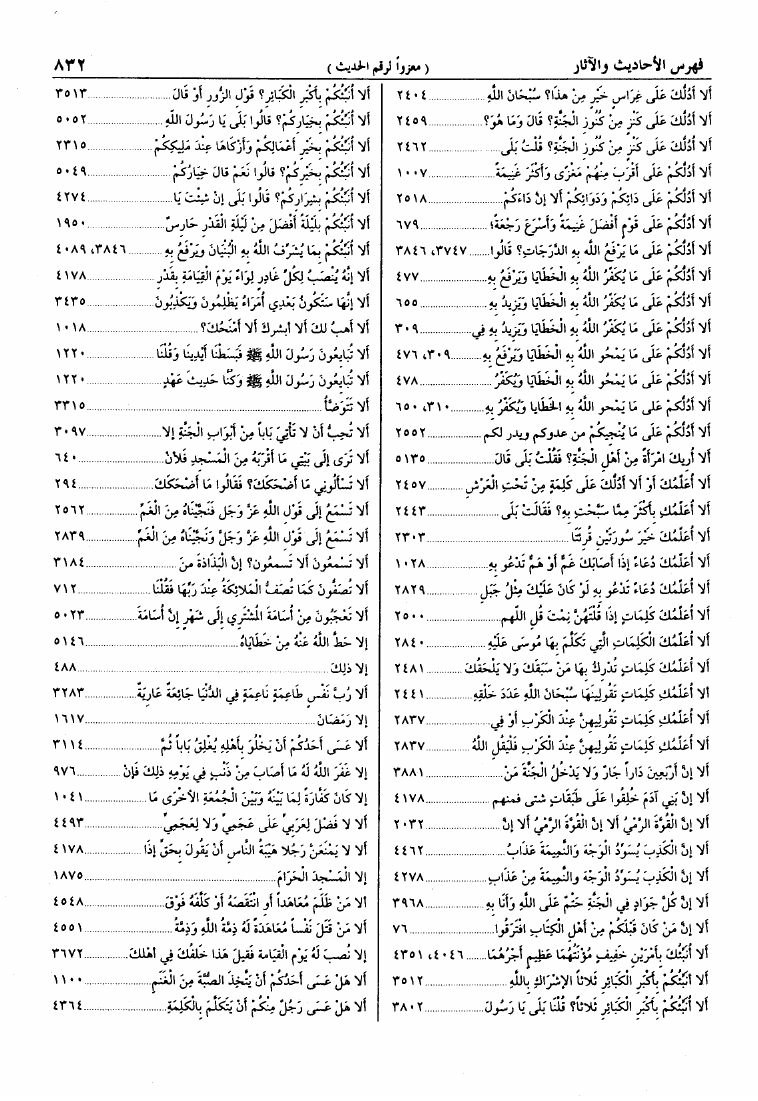 فهرس الأحاديث والآثار
( معزواً لرقم الحديث )
٨٣٢
ألا أدُلُّكَ عَلَى غِرَاسٍ خَيْرٍ مِنْ هذَا؟ سُبْحَانَ اللهِ ........ ٢٤٠٤
ألا أدُلُّكَ عَلَى كَنْزٍ مِنْ كُنُوزِ الْجَنَّةِ؟ قَالَ وَمَا هُوَ؟ ........ ٢٤٥٩
ألا أدُلُّكَ عَلَى كَنْزٍ مِنْ كُنُوزِ الْجَنَّةِ؟ قُلْتُ بَلَى ........ ٢٤٦٢
ألا أدُلُّكُمْ عَلَى أقْرَبَ مِنْهُمْ مَغْزًى وَأكْثَرَ غَنِيمَةً ........ ١٠٠٧
ألا أدُلُّكُمْ عَلَى دَائِكُمْ وَدَوَائِكُمْ ألا إنَّ دَاءَكُمْ ........ ٢٥١٨
ألا أدُلُّكُمْ عَلَى قَوْمٍ أفْضَلَ غَنِيمَةً وَأسْرَعَ رَجْعَةً؛ ........ ٦٧٩
ألا أدُلُّكُمْ عَلَى مَا يَرْفَعُ اللهُ بِهِ الدَّرَجَاتِ؟ قَالُوا ........ ٣٧٤٧، ٣٨٤٦
ألا أدُلُّكُمْ عَلَى مَا يُكَفِّرُ اللهُ بِهِ الْخَطَايَا وَيَرْفَعُ بِهِ ........ ٤٧٧
ألا أدُلُّكُمْ عَلَى مَا يُكَفِّرُ اللهُ بِهِ الْخَطَايَا وَيَزِيدُ بِهِ ........ ٦٥٥
ألا أدُلُّكُمْ عَلَى مَا يُكَفِّرُ اللهُ بِهِ الْخَطَايَا وَيَزِيدُ بِهِ فِي ........ ٣٠٩
ألا أدُلُّكُمْ عَلَى مَا يَمْحُو اللهُ بِهِ الْخَطَايَا وَيَرْفَعُ بِهِ ........ ٣٠٩، ٤٧٦
ألا أدُلُّكُمْ عَلَى مَا يَمْحُو اللهُ بِهِ الْخَطَايَا وَيُكَفِّرُ ........ ٤٧٨
ألا أدُلُّكُمْ عَلَى مَا يَمْحو اللهُ بِهِ الخَطَايا وَيُكَفِّرُ بِهِ ........ ٣١٠، ٦٥٠
ألا أدُلُّكُمْ عَلَى مَا يُنْجِيكُمْ من عدوكم ويدر لكم ........ ٢٥٥٢
ألا أُرِيكَ امْرَأةً مِنْ أهْلِ الْجَنَّةِ؟ فَقُلْتُ بَلَى قَالَ ........ ٥١٣٥
ألا أُعَلِّمُكَ أوْ ألا أدُلُّكَ عَلَى كَلِمَةٍ مِنْ تَحْتِ الْعَرْشِ ........ ٢٤٥٧
ألا أُعَلِّمُكِ بِأكْثَرَ مِمَّا سَبَّحْتِ بِهِ؟ فَقَالَتْ بَلَى ........ ٢٤٤٣
ألا أُعَلِّمُكَ خَيْرَ سُورَتَيْنِ قُرِئَتَا ........ ٢٣٠٣
ألا أُعَلِّمُكَ دُعَاءً إذَا أصَابَكَ غَمٌّ أوْ هَمٌّ تَدْعُو بِهِ ........ ١٠٢٨
ألا أُعَلِّمُكَ دُعَاءً تَدْعُو بِهِ لَوْ كَانَ عَلَيْكَ مِثْلُ جَبَلٍ ........ ٢٨٢٩
ألا أُعَلِّمُكَ كَلِمَاتٍ إذَا قُلْتَهُنَّ نِمْتَ قُلِ اللهم ........ ٢٥٠٠
ألا أُعَلِّمُكَ الْكَلِمَاتِ الَّتِي تَكَلَّمَ بِهَا مُوسَى عَلَيْهِ ........ ٢٨٤٠
ألا أُعَلِّمُكَ كَلِمَاتٍ تُدْرِكُ بِهَا مَنْ سَبَقَكَ وَلا يَلْحَقُكَ ........ ٢٤٨١
ألا أُعَلِّمُكِ كَلِمَاتٍ تَقُولِينَهَا سُبْحَانَ اللهِ عَدَدَ خَلْقِهِ ........ ٢٤٤١
ألا أُعَلِّمُكِ كَلِمَاتٍ تَقُولِيهِنَّ عِنْدَ الْكَرْبِ أوْ فِي ........ ٢٨٣٧
ألا أُعَلِّمُكِ كَلِمَاتٍ تَقُولِيهِنَّ عِنْدَ الْكَرْبِ فَلْيَقُلِ اللهُ ........ ٢٨٣٧
ألا إنَّ أرْبَعِينَ دَاراً جَارٌ وَلا يَدْخُلُ الْجَنَّةَ مَنْ ........ ٣٨٨١
ألا إنَّ بَنِي آدَمَ خُلِقُوا عَلَى طَبَقَاتٍ شتى فمنهم ........ ٤١٧٨
ألا إنَّ الْقُوَّةَ الرَّمْيُ ألا إنَّ الْقُوَّةَ الرَّمْيُ ألا إنَّ ........ ٢٠٣٢
ألا إنَّ الْكَذِبَ يُسَوِّدُ الْوَجْهَ وَالنَّمِيمَةَ عَذَابُ ........ ٤٤٦٢
ألا إنَّ الْكَذِبَ يُسَوِّدُ الْوَجْهَ والنَّمِيمَةَ مِنْ عَذَابِ ........ ٤٢٧٨
ألا إنَّ كُلَّ جَوَادٍ فِي الْجَنَّةِ حَتْمٌ عَلَى اللهِ وَأنَا بِهِ ........ ٣٩٦٨
ألا إنَّ مَنْ كَانَ قَبْلَكُمْ مِنْ أهْلِ الْكِتَابِ افْتَرَقُوا ........ ٧٦
ألا أُنَبِّئُكَ بِأمْرَيْنِ خَفِيفٍ مُؤْنَتُهُمَا عَظِيمٍ أجْرُهُمَا ........ ٤٠٤٦، ٤٣٥١
ألا أُنَبِّئُكُمْ بِأكْبَرِ الْكَبَائِرِ ثَلاثاً الإشْرَاكِ بِاللهِ ........ ٣٥١٢
ألا أُنَبِّئُكُمْ بِأكْبَرِ الْكَبَائِرِ ثَلاثاً؟ قُلْنَا بَلَى يَا رَسُولَ ........ ٣٨٠٢
ألا أُنَبِّئُكُمْ بِأكْبَرِ الْكَبَائِرِ؟ قَوْلِ الزُّورِ أوْ قَالَ ........ ٣٥١٣
ألا أُنَبِّئُكُمْ بِخِيَارِكُمْ؟ قَالُوا بَلَى يَا رَسُولَ اللهِ ........ ٥٠٥٢
ألا أُنَبِّئُكُمْ بِخَيْرِ أعْمَالِكُمْ وَأزْكَاهَا عِنْدَ مَلِيكِكُمْ ........ ٢٣١٥
ألا أُنَبِّئُكُمْ بِخَيْرِكُمْ؟ قالُوا نَعَمْ قالَ خِيَارُكُمْ ........ ٥٠٤٩
ألا أُنَبِّئُكُمْ بِشِرَارِكُمْ؟ قَالُوا بَلَى إنْ شِئْتَ يَا ........ ٤٢٧٤
ألا أُنَبِّئُكُمْ بِلَيْلَةٍ أفْضَلَ مِنْ لَيْلَةِ الْقَدْرِ حَارِسٌ ........ ١٩٥٠
ألا أُنَبِّئُكُمْ بِمَا يُشَرِّفُ اللهُ بِهِ الْبُنْيَانَ وَيَرْفَعُ بِهِ ........ ٣٨٤٦، ٤٠٨٩
ألا إنَّهُ يُنْصَبُ لِكُلِّ غَادِرٍ لِوَاءٌ يَوْمَ الْقِيَامَةِ بِقَدْرِ ........ ٤١٧٨
ألا إنَّهَا سَتَكُونُ بَعْدِي أُمَرَاءُ يَظْلِمُونَ وَيَكْذِبُونَ ........ ٣٤٣٥
ألا أهَبُ لكَ ألا أبشركَ ألا أمْنَحُكَ؟ ........ ١٠١٨
ألا تُبَايِعُونَ رَسُولَ اللهِ ﷺ فَبَسَطْنَا أيْدِينَا وَقُلْنَا ........ ١٢٢٠
ألا تُبَايِعُونَ رَسُولَ اللهِ ﷺ وَكُنَّا حَدِيثَ عَهْدٍ ........ ١٢٢٠
ألا تَتَوَضَّأُ ........ ٣٣١٥
ألا تُحِبُّ أنْ لا تَأتِيَ بَاباً مِنْ أبْوَابِ الْجَنَّةِ إلا ........ ٣٠٩٧
ألا تَرَى إلَى بَيْتِي مَا أقْرَبَهُ مِنَ الْمَسْجِدِ فَلأنْ ........ ٦٤٠
ألا تَسْألُونِي مَا أضْحَكَكَ؟ فَقَالُوا مَا أضْحَكَكَ ........ ٢٩٤
ألا تَسْمَعُ إلَى قَوْلِ اللهِ عَزَّ وَجَلَ فَنَجَّيْنَاهُ مِنَ الْغَمِّ ........ ٢٥٦٢
ألا تَسْمَعُ إلَى قَوْلِ اللهِ عَزَّ وَجَلَّ وَنَجَّيْنَاهُ مِنَ الْغَمِّ ........ ٢٨٣٩
ألا تَسْمَعُونَ ألا تَسمعُونَ؟ إنَّ الْبَذَاذَةَ منَ ........ ٣١٨٤
ألا تُصَفُّونَ كَمَا تُصَفُّ الْمَلائِكَةُ عِنْدَ رَبِّهَا فَقُلْنَا ........ ٧١٢
ألا تَعْجَبُونَ مِنْ أُسَامَةَ الْمُشْتَرِي إلَى شَهْرٍ إنَّ أُسَامَةَ ........ ٥٠٢٣
إلا حَطَّ اللهُ عَنْهُ مِنْ خَطَايَاهُ ........ ٥١٤٦
إلا ذلِكَ ........ ٤٨٨
ألا رُبَّ نَفْسٍ طَاعِمَةٍ نَاعِمَةٍ فِي الدُّنْيَا جَائِعَةٌ عَارِيَةٌ ........ ٣٢٨٣
إلا رَمَضَانَ ........ ١٦١٧
ألا عَسَى أحَدُكُمْ أنْ يَخْلُوَ بِأهْلِهِ يُغْلِقُ بَاباً ثُمَّ ........ ٣١١٤
إلا غَفَرَ اللهُ لَهُ مَا أصَابَ مِنْ ذَنْبٍ فِي يَوْمِهِ ذلِكَ فَإنْ ........ ٩٧٦
إلا كَانَ كَفَّارَةً لِمَا بَيْنَهُ وَبَيْنَ الْجُمُعَةِ الأخْرَى مَا ........ ١٠٤١
ألا لا فَضْلَ لِعَرَبِيٍّ عَلَى عَجَمِيٍّ وَلا لِعَجَمِيٍّ ........ ٤٤٩٣
ألا لا يَمْنَعَنَّ رَجُلا هَيْبَةُ النَّاسِ أنْ يَقُولَ بِحَقٍّ إذَا ........ ٤١٧٨
إلا الْمَسْجِدَ الْحَرَامَ ........ ١٨٧٥
ألا مَنْ ظَلَمَ مُعَاهَداً أوِ انْتَقَصَهُ أوْ كَلَّفَهُ فَوْقَ ........ ٤٥٤٨
ألا مَنْ قَتَلَ نَفْساً مُعَاهَدَةً لَهُ ذِمَّةُ اللهِ وَذِمَّةُ ........ ٤٥٥١
إلا نُصِبَ لَهُ يَوْمَ القِيَامَة فَقيلَ هَذا خَلَفَكَ في أهْلكَ ........ ٣٦٧٢
ألا هَلْ عَسَى أحَدُكُمْ أنْ يَتَّخِذَ الصُّبَّةَ مِنَ الْغَنَمِ ........ ١١٠٠
ألا هَلْ عَسَى رَجُلٌ مِنْكُمْ أنْ يَتَكَلَّمَ بِالْكَلِمَةِ ........ ٤٣٦٤